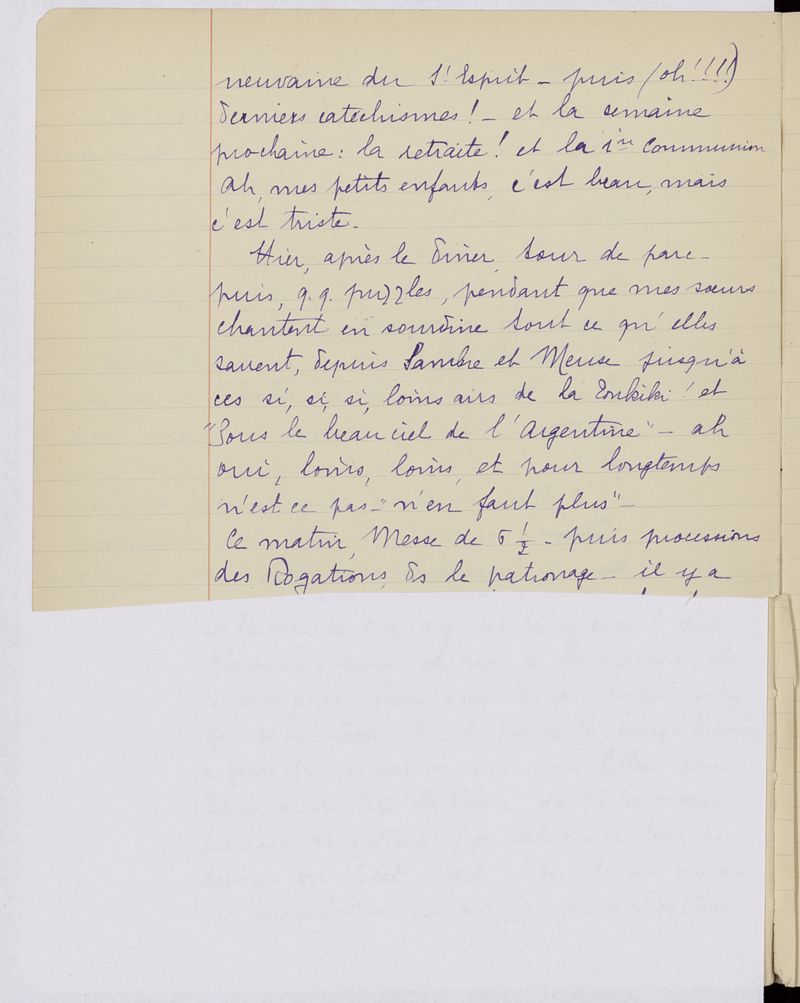 neuvaine du St Esprit - puis (oh!!!!)
derniers catechismes! - et la semaine
prochaine: la retraite! et la 1re Communion
Ah, mes petits enfants, c'est beau, mais
c'est triste.
Hier, après le dîner, tour de parc -
puis, q.q. puzzles, pendant que mes sœurs
chantent en sourdine tout ce qu'elles
savent, depuis Sambre et Meuse jusqu'à
ces si, si, si, loins airs de la Tonkiki! et
"Sous le beau ciel de l'Argentine" - ah
oui, loins, loins, et pour longtemps
n'est ce pas - "n'en faut plus" -
Ce matin, Messe de 6 1/2 - puis processions
des Rogations ds le patronage - il y a